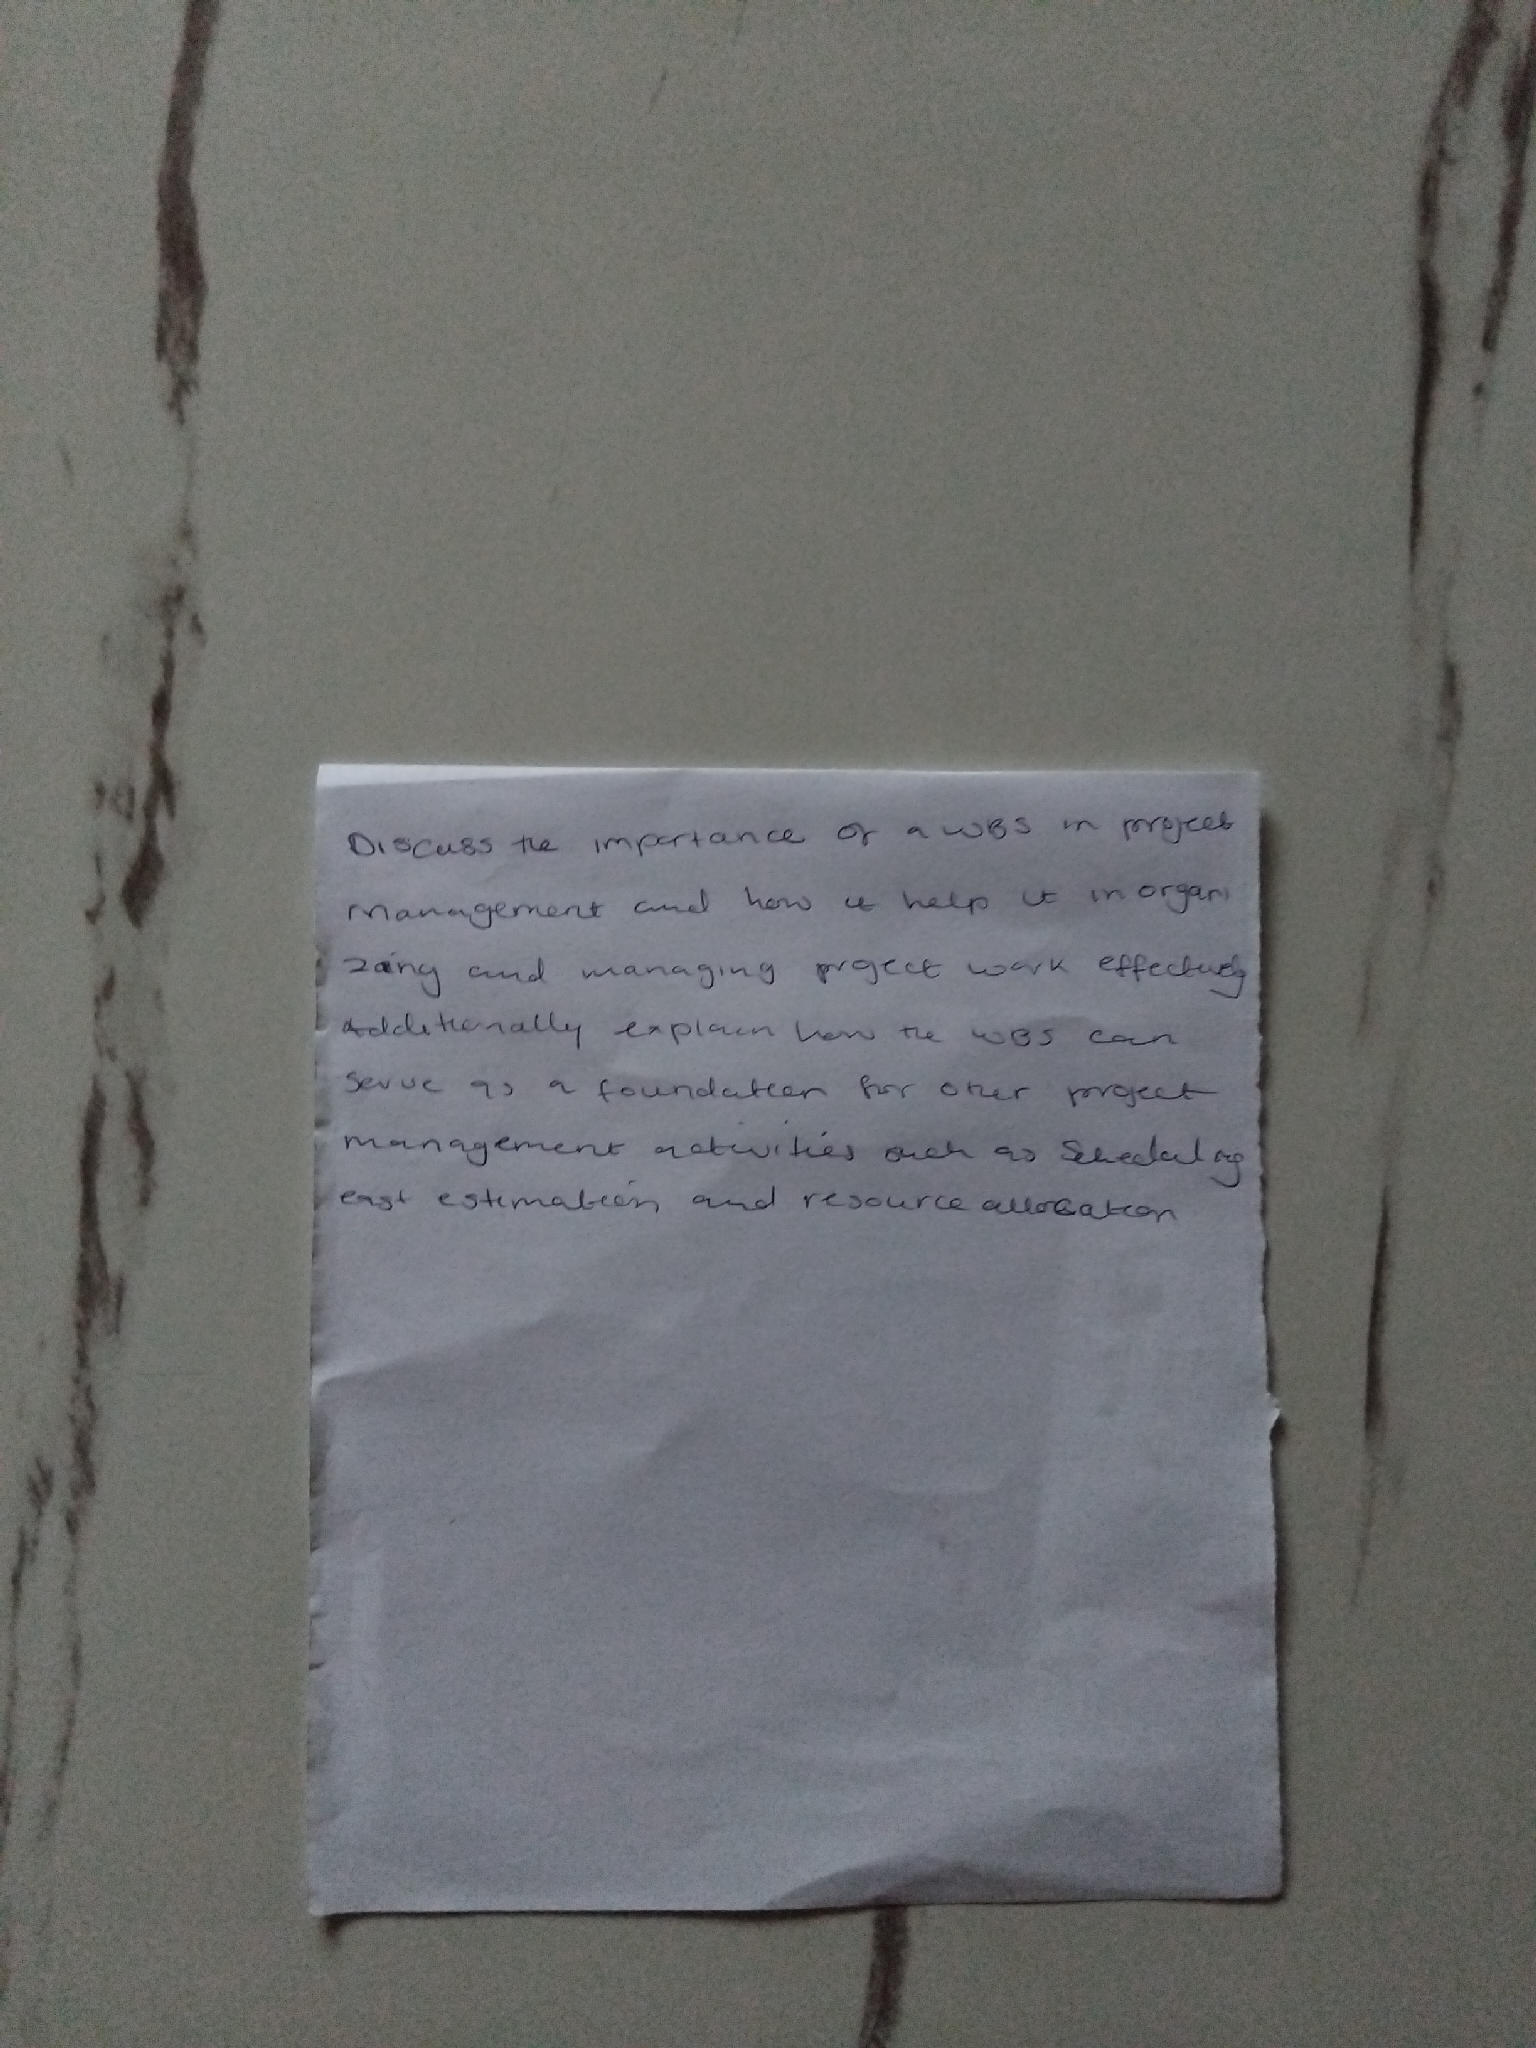 Discuss the importance of a WBS in project
management and how it help it in organi
zaing and managing project work effectively
Additionally explain how the WBS can
serve as a foundation for other project
management activities such as Scheduling
cost estimation and resource allocation